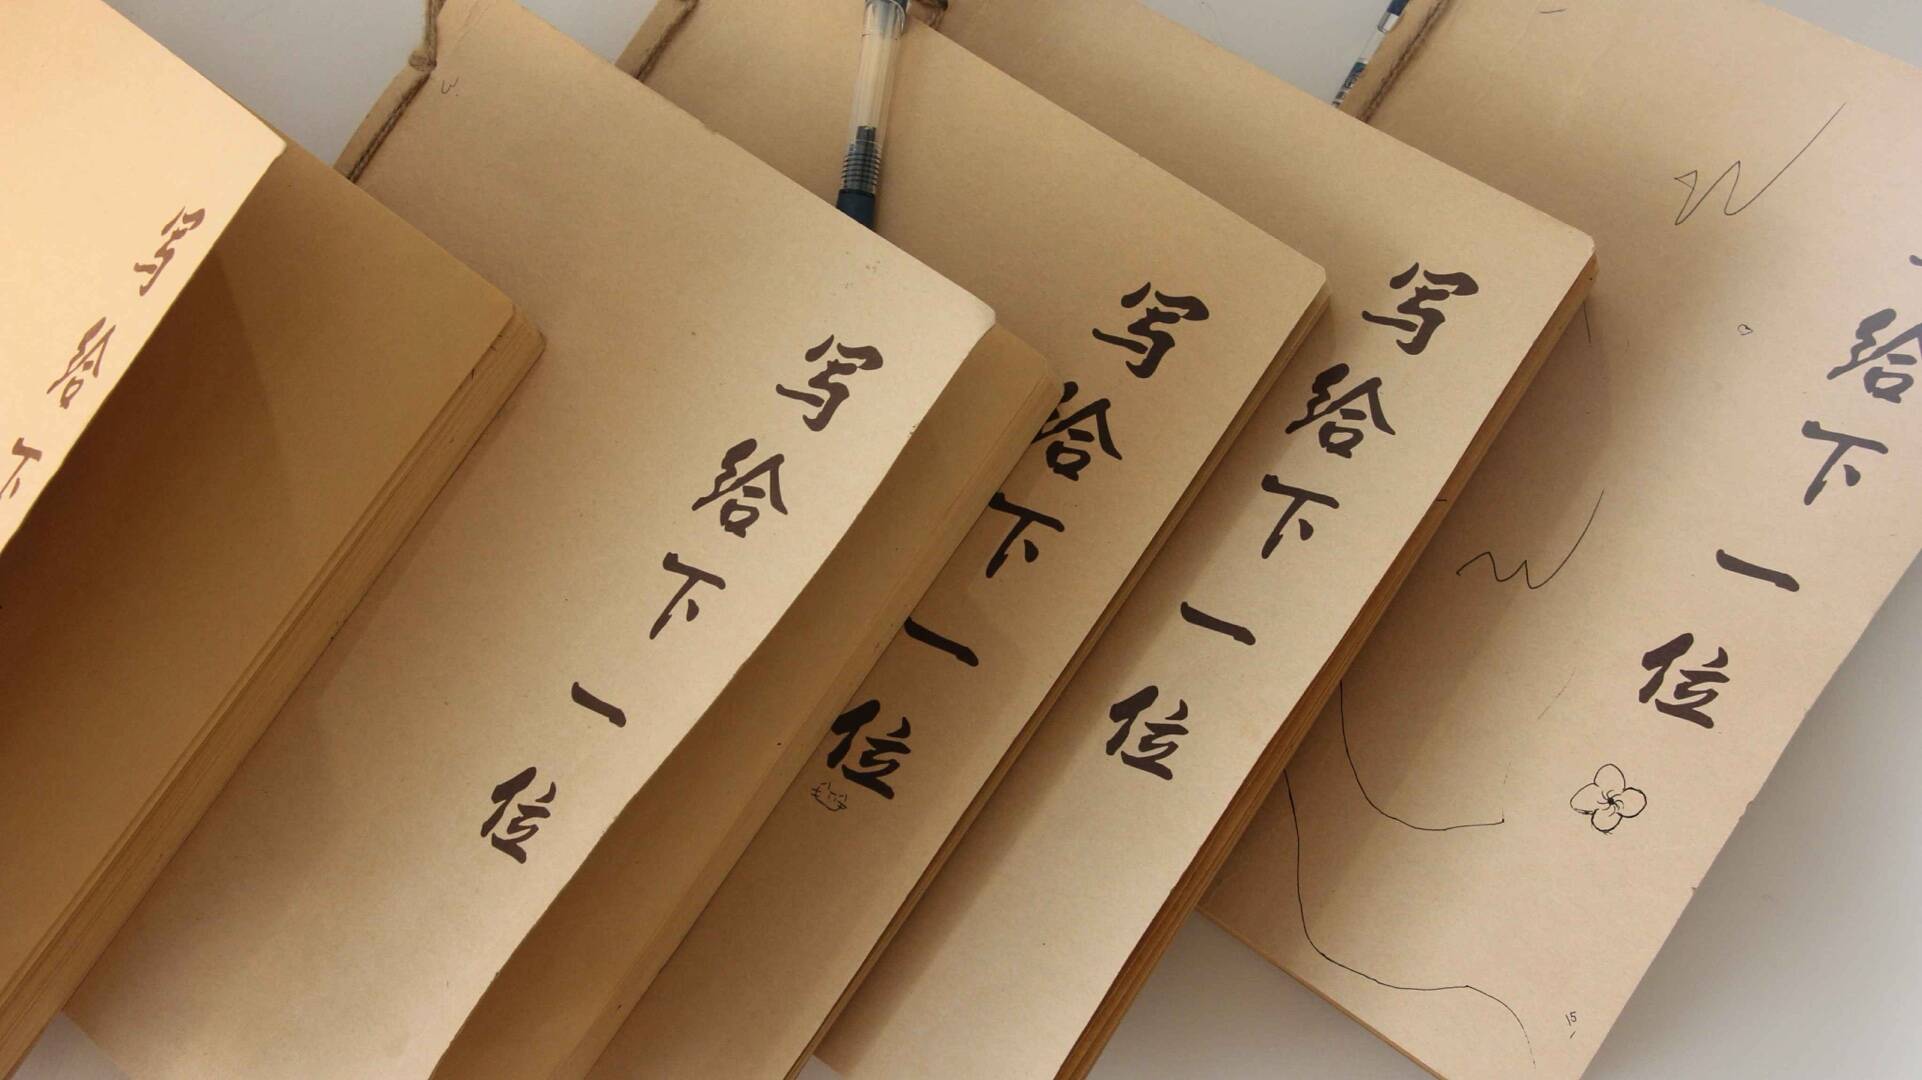 写给下
写给下一位
写给下一位
写给下一位
给下一位
15